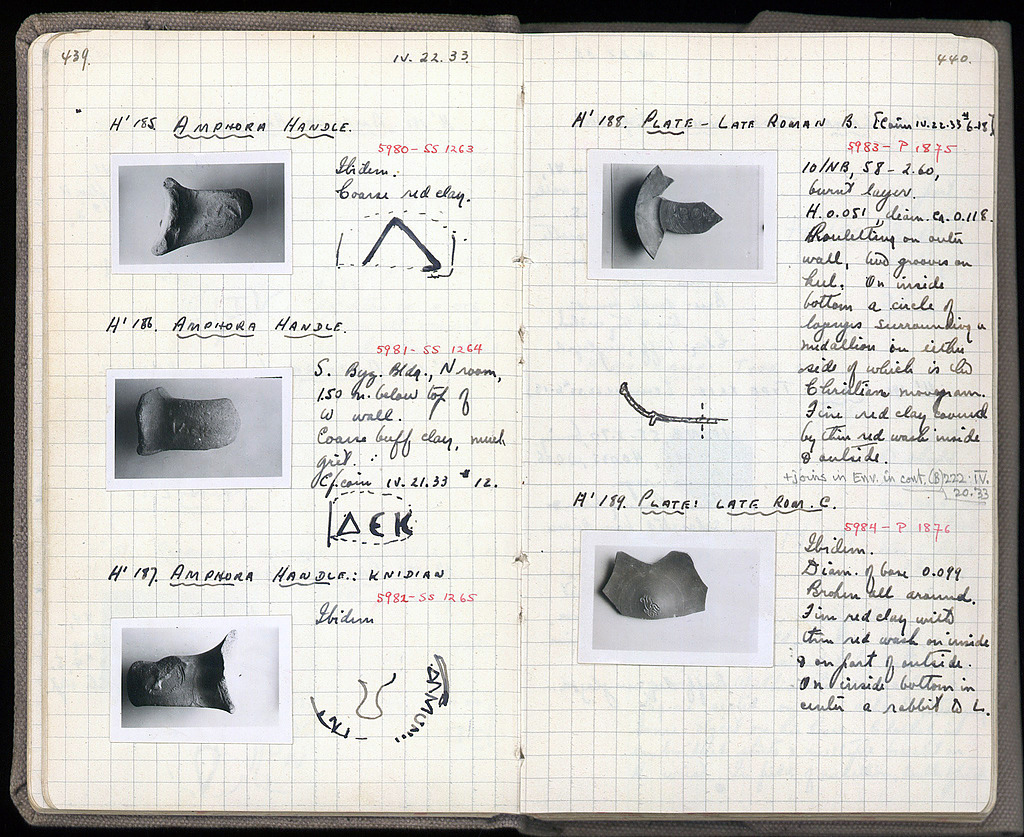 439.
IV. 22. 33.
H' 185. AMPHORA HANDLE.
5980 - SS 1263
Ibidem.
Coarse red clay.
H' 186. AMPHORA HANDLE.
5981 - SS 1264
S. Byz. Bldg., N room,
1.50 m. below top of
W wall.
Coarse buff clay, much
grit.
Cf. coin IV. 21.33 # 12.
ΔΕΚ
H' 187. AMPHORA HANDLE: KNIDIAN
5982 - SS 1265
Ibidem
440.
H' 188. PLATE - LATE ROMAN B. [Coins IV.22.33 # 6-18]
5983 - P 1875
10/NB, 58 - 2.60,
burnt layer.
H. 0.051, diam. ca. 0.118.
Rouletting on outer
wall, two grooves on
heel. On inside
bottom a circle of
lozenges surrounding a
medallion on either
side of which is the
Christian monogram.
Fine red clay covered
by thin red wash inside
& outside.
+ joins in Env. in cont. (B) 222. IV.
20.33
H' 189. PLATE: LATE ROM. C.
5984 - P 1876
Ibidem.
Diam. of base 0.099
Broken all around.
Fine red clay with
thin red wash on inside
& on part of outside.
On inside bottom in
center a rabbit to L.